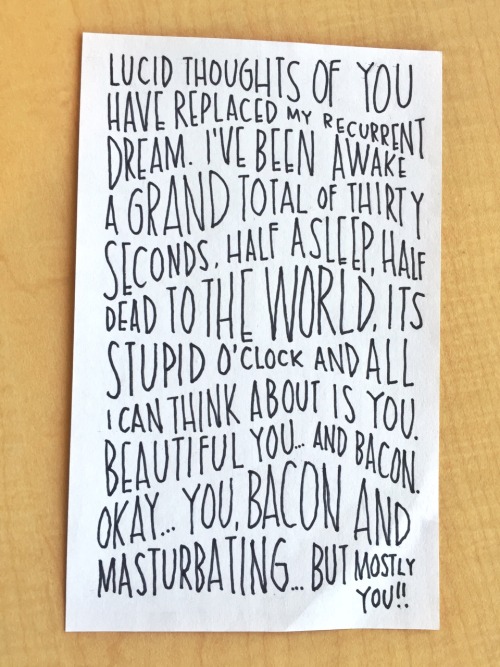 LUCID THOUGHTS OF YOU
HAVE REPLACED MY RECURRENT
DREAM. I'VE BEEN AWAKE
A GRAND TOTAL OF THIRTY
SECONDS, HALF ASLEEP, HALF
DEAD TO THE WORLD, ITS
STUPID O'CLOCK AND ALL
I CAN THINK ABOUT IS YOU.
BEAUTIFUL YOU... AND BACON.
OKAY... YOU, BACON AND
MASTURBATING... BUT MOSTLY
YOU!!